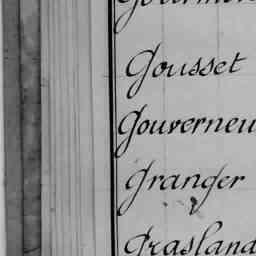 Gousset
Gouverneu
Granger
Grasland